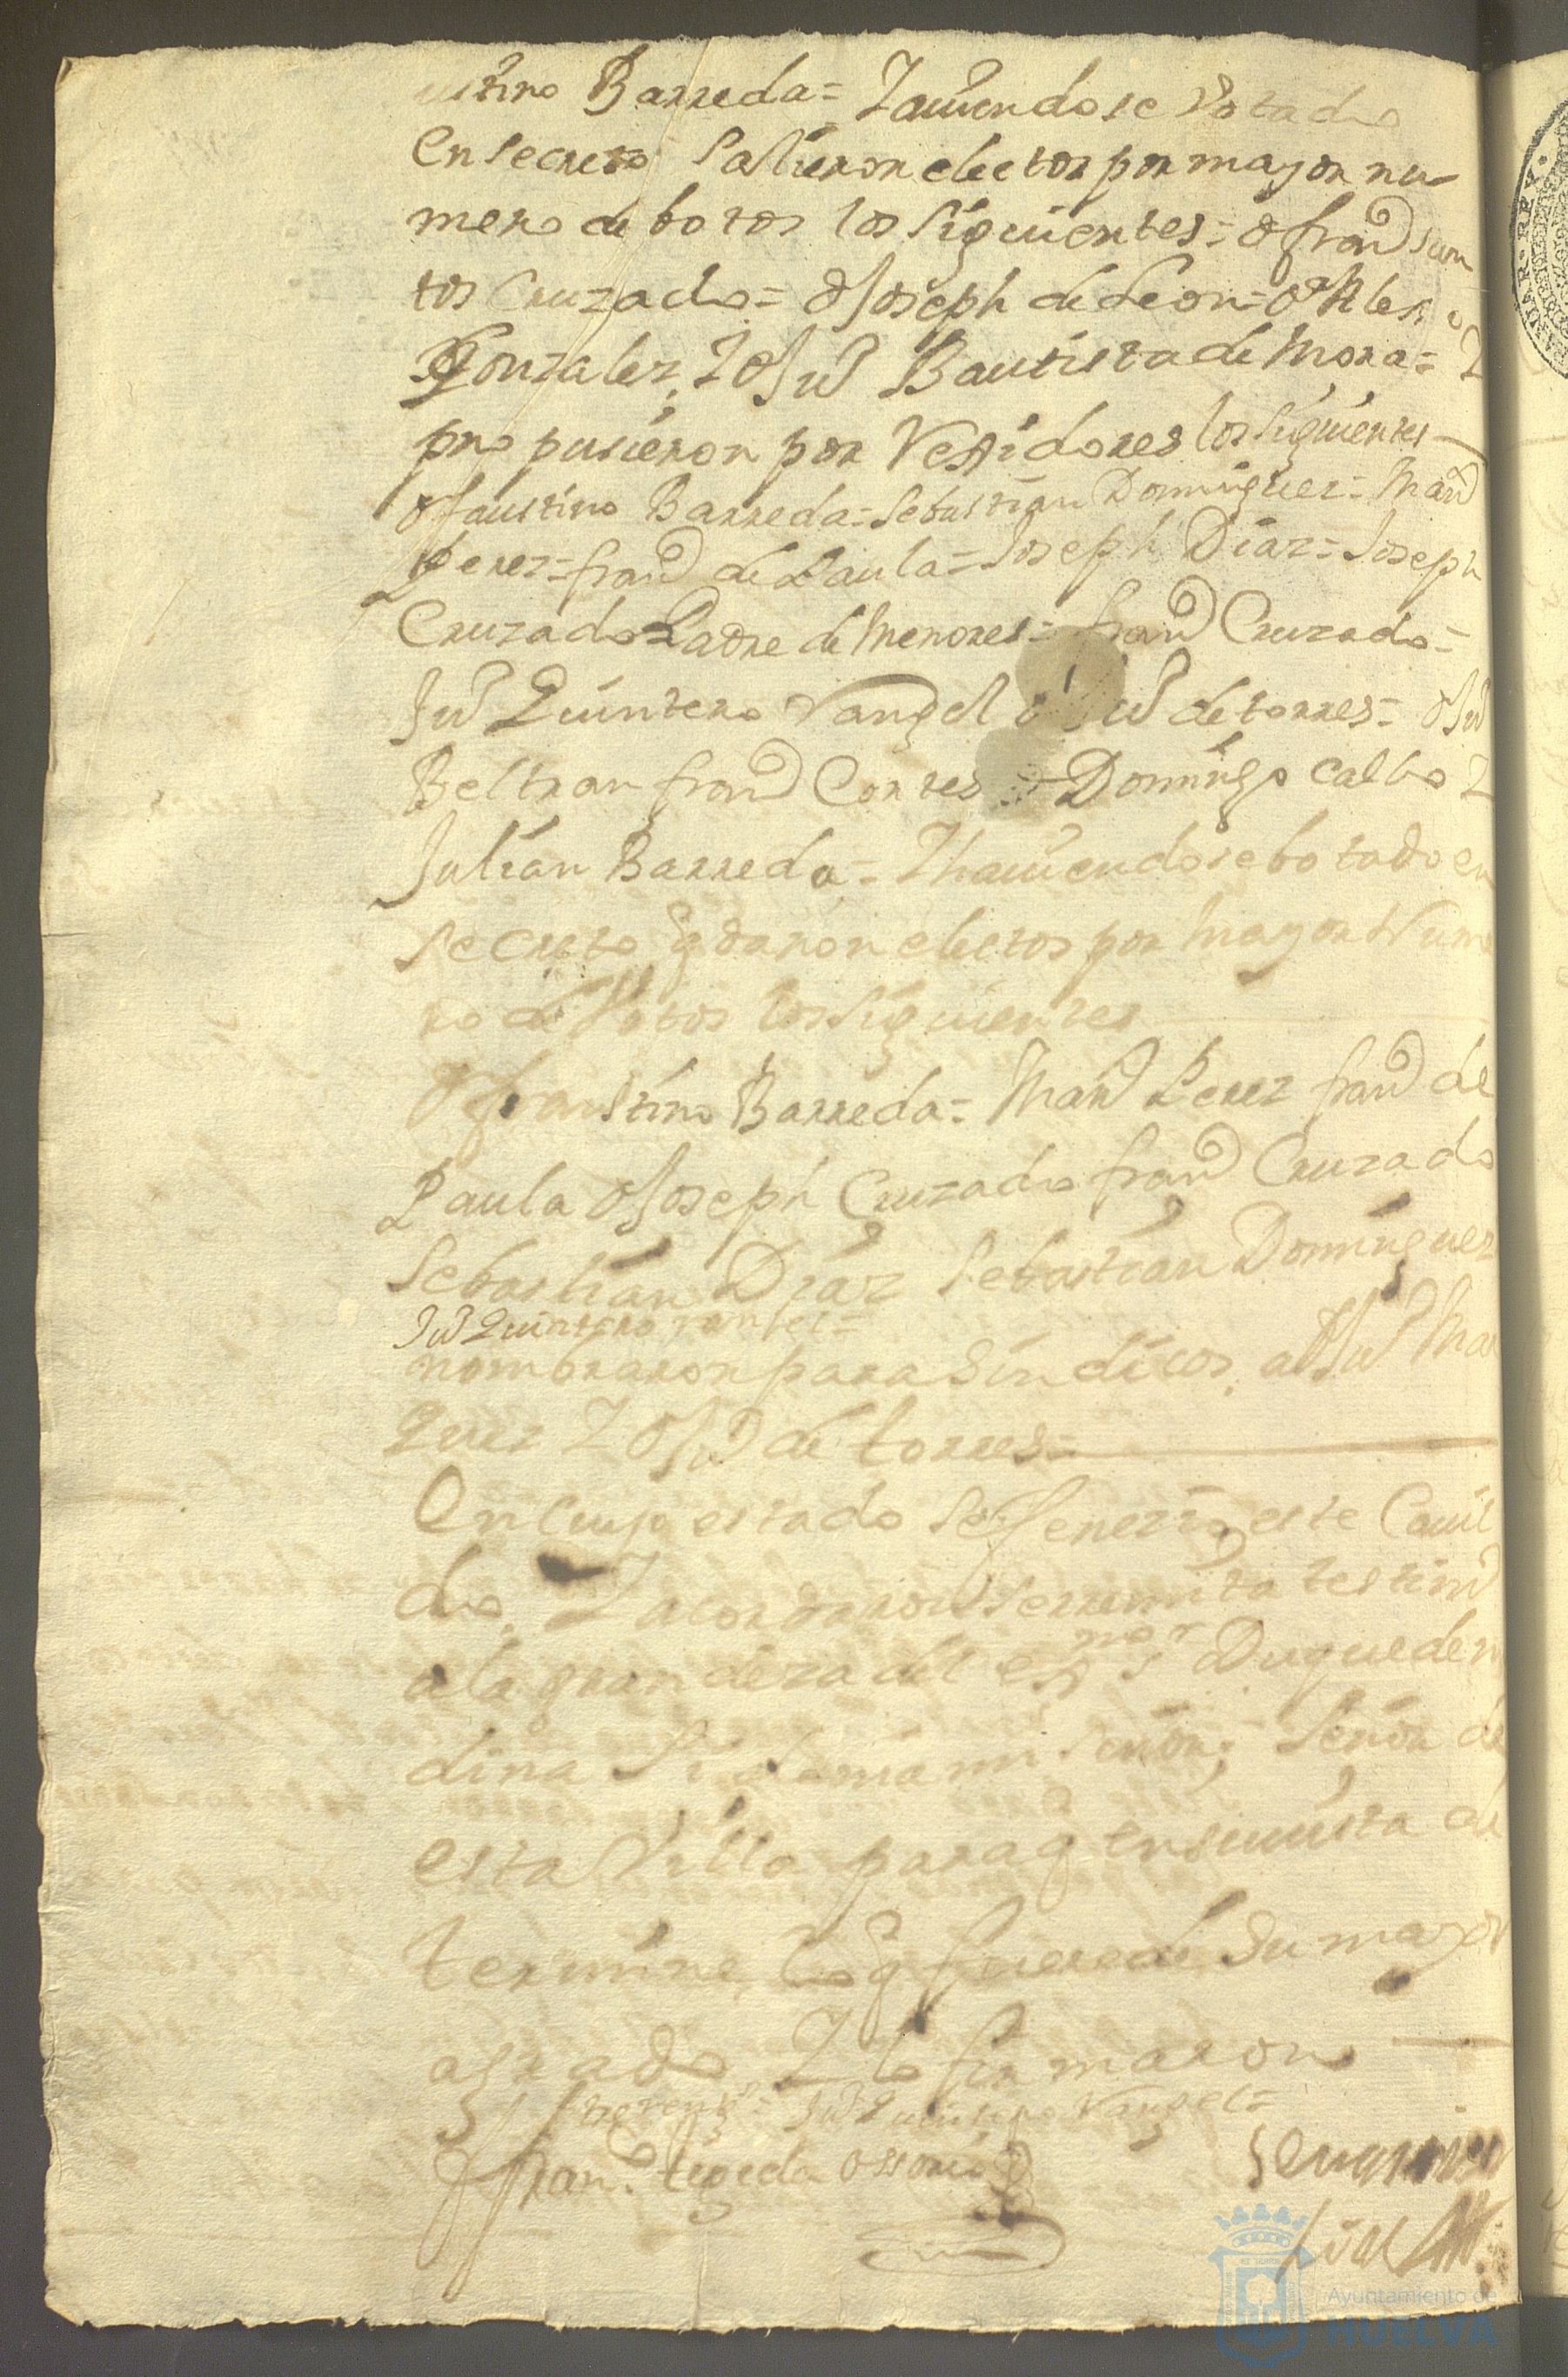 ustino Barreda = Y auiendose Votado
en secreto salieron electos por mayor nu-
mero de botos los siguientes = Dn franco san
tos Cruzado = Dn Joseph de Leon = Dn Alexo
Gonzalez, Y Dn Juo Bautista de Mora = Y
pro pusieron por Rexidores los siguientes
Dn faustino Barreda = Sebastian Dominguez = Manl
Perez = franco de Paula = Joseph Diaz = Joseph
Cruzado Padre de Menores = franco Cruzado =
Juo Quintero Vangel Juo de torres = Dn Juo
Beltran franco Cortes = Domingo Calbo Y
Julian Barreda = Y hauiendose botado en
secreto q daron electos por Mayor Nume
ro de Votos los siguientes
Dn faustino Barreda = Manl Perez franco de
Paula Dn Joseph Cruzado franco Cruzado
Sebastian Diaz Sebastian Dominguez
Juo Quintero vangel =
nombraron para Sindicos, a Dn Juo Mar
quez Y Dn Juo de torres =
En cuyo estado se fenezio este Cauil
do, Y acordaron se remita testimo
a la grandeza del exmo sr Duque de m
dina Sidonia mi señor, señor de
esta Villa para q en su uista de
termine lo q fuere de su mayor
agrado Y lo firmaron
entre rengs = Juo Quintero Vangel =
Dn Fran.co tejeda ossorio